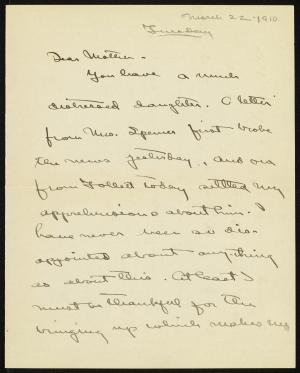 March 22-1910
Tuesday
Dear Mother -
You have a much
distressed daughter. A letter
from Mrs. Spencer first broke
the news yesterday, and one
from Follett today settled my
apprehensions about him. I
have never been so dis-
appointed about anything
as about this. At least I
must be thankful for the
bringing up which makes my